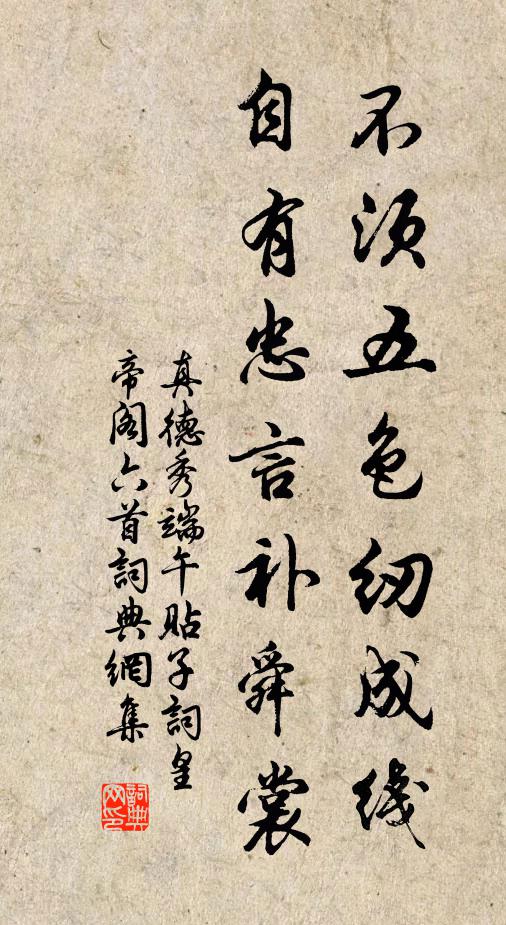 不须五色纫成线
自有忠言补舜裳
真德秀端午贴子詞皇
帝阁六首詞典網集
詞典
网印